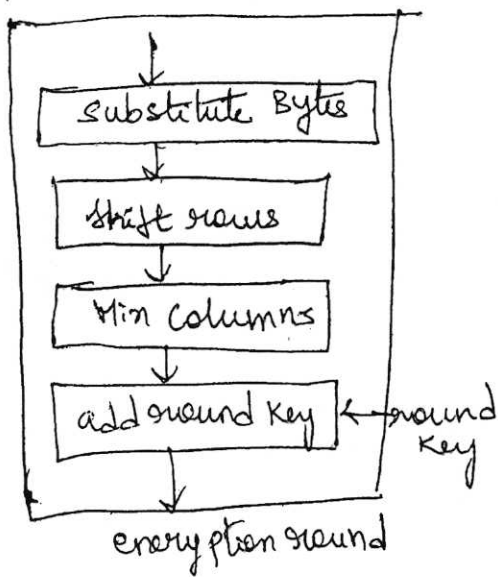 Substitute Bytes
Shift rows
Mix Columns
add round Key
round
Key
encryption round